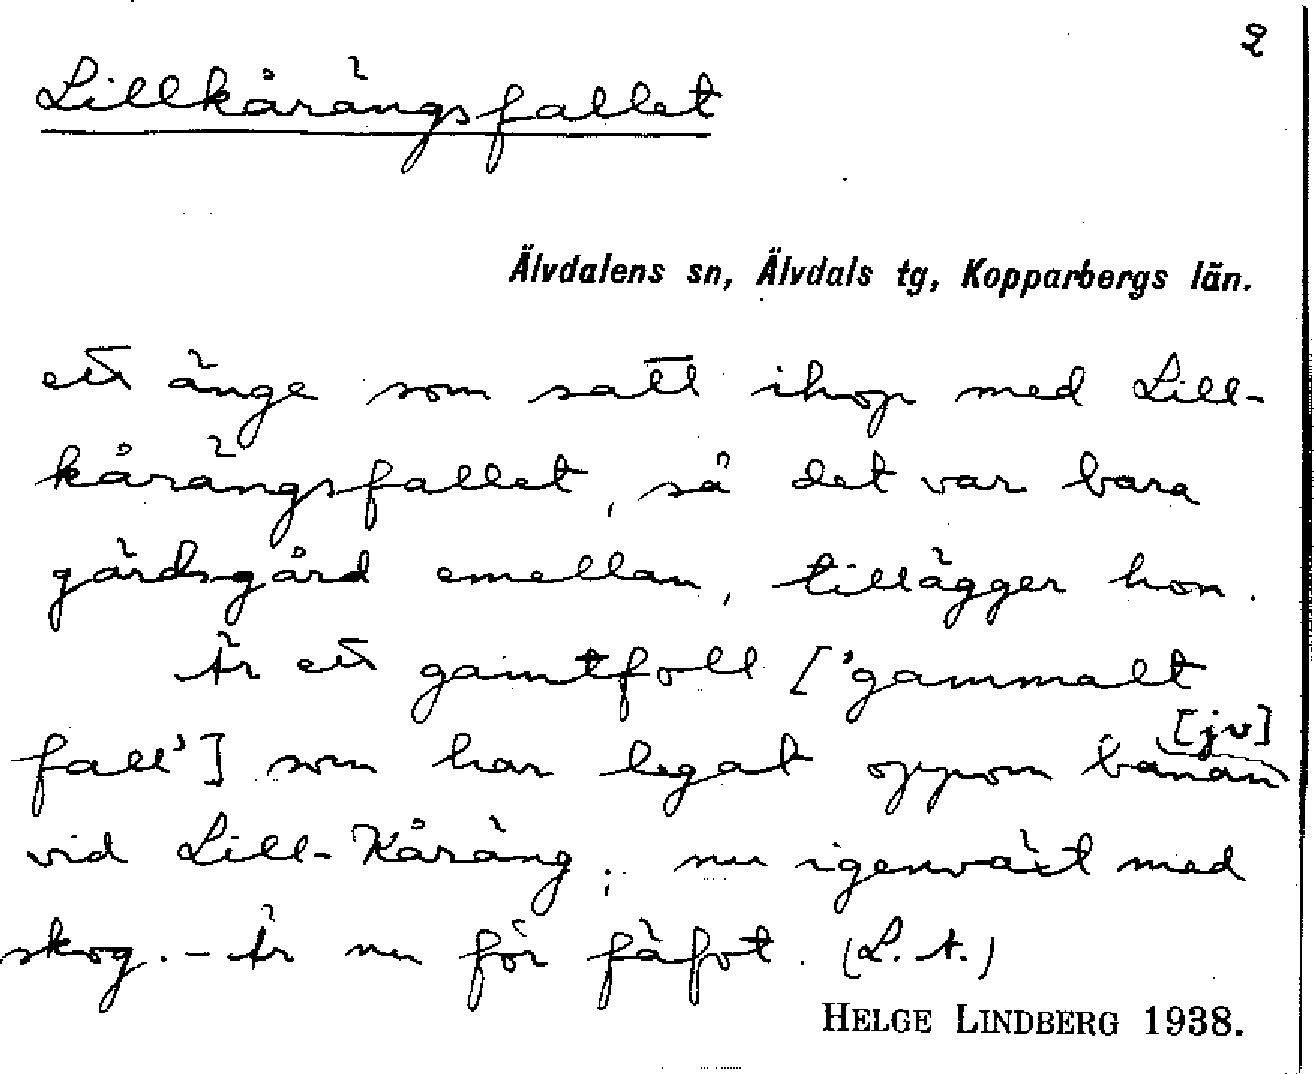 2
Lillkårängsfallet
Älvdalens sn, Älvdals tg, Kopparbergs län.
ett änge som satt ihop med Lill-
kårängsfallet, så det var bara
gärdsgård emellan, tillägger hon.
Är ett gamtfoll ['gammalt
fall'] som har legat oppom banan [jv]
vid Lill-Kåräng; nu igenväxt med
skog. - Är nu för fäfot. (L. A.)
HELGE LINDBERG 1938.